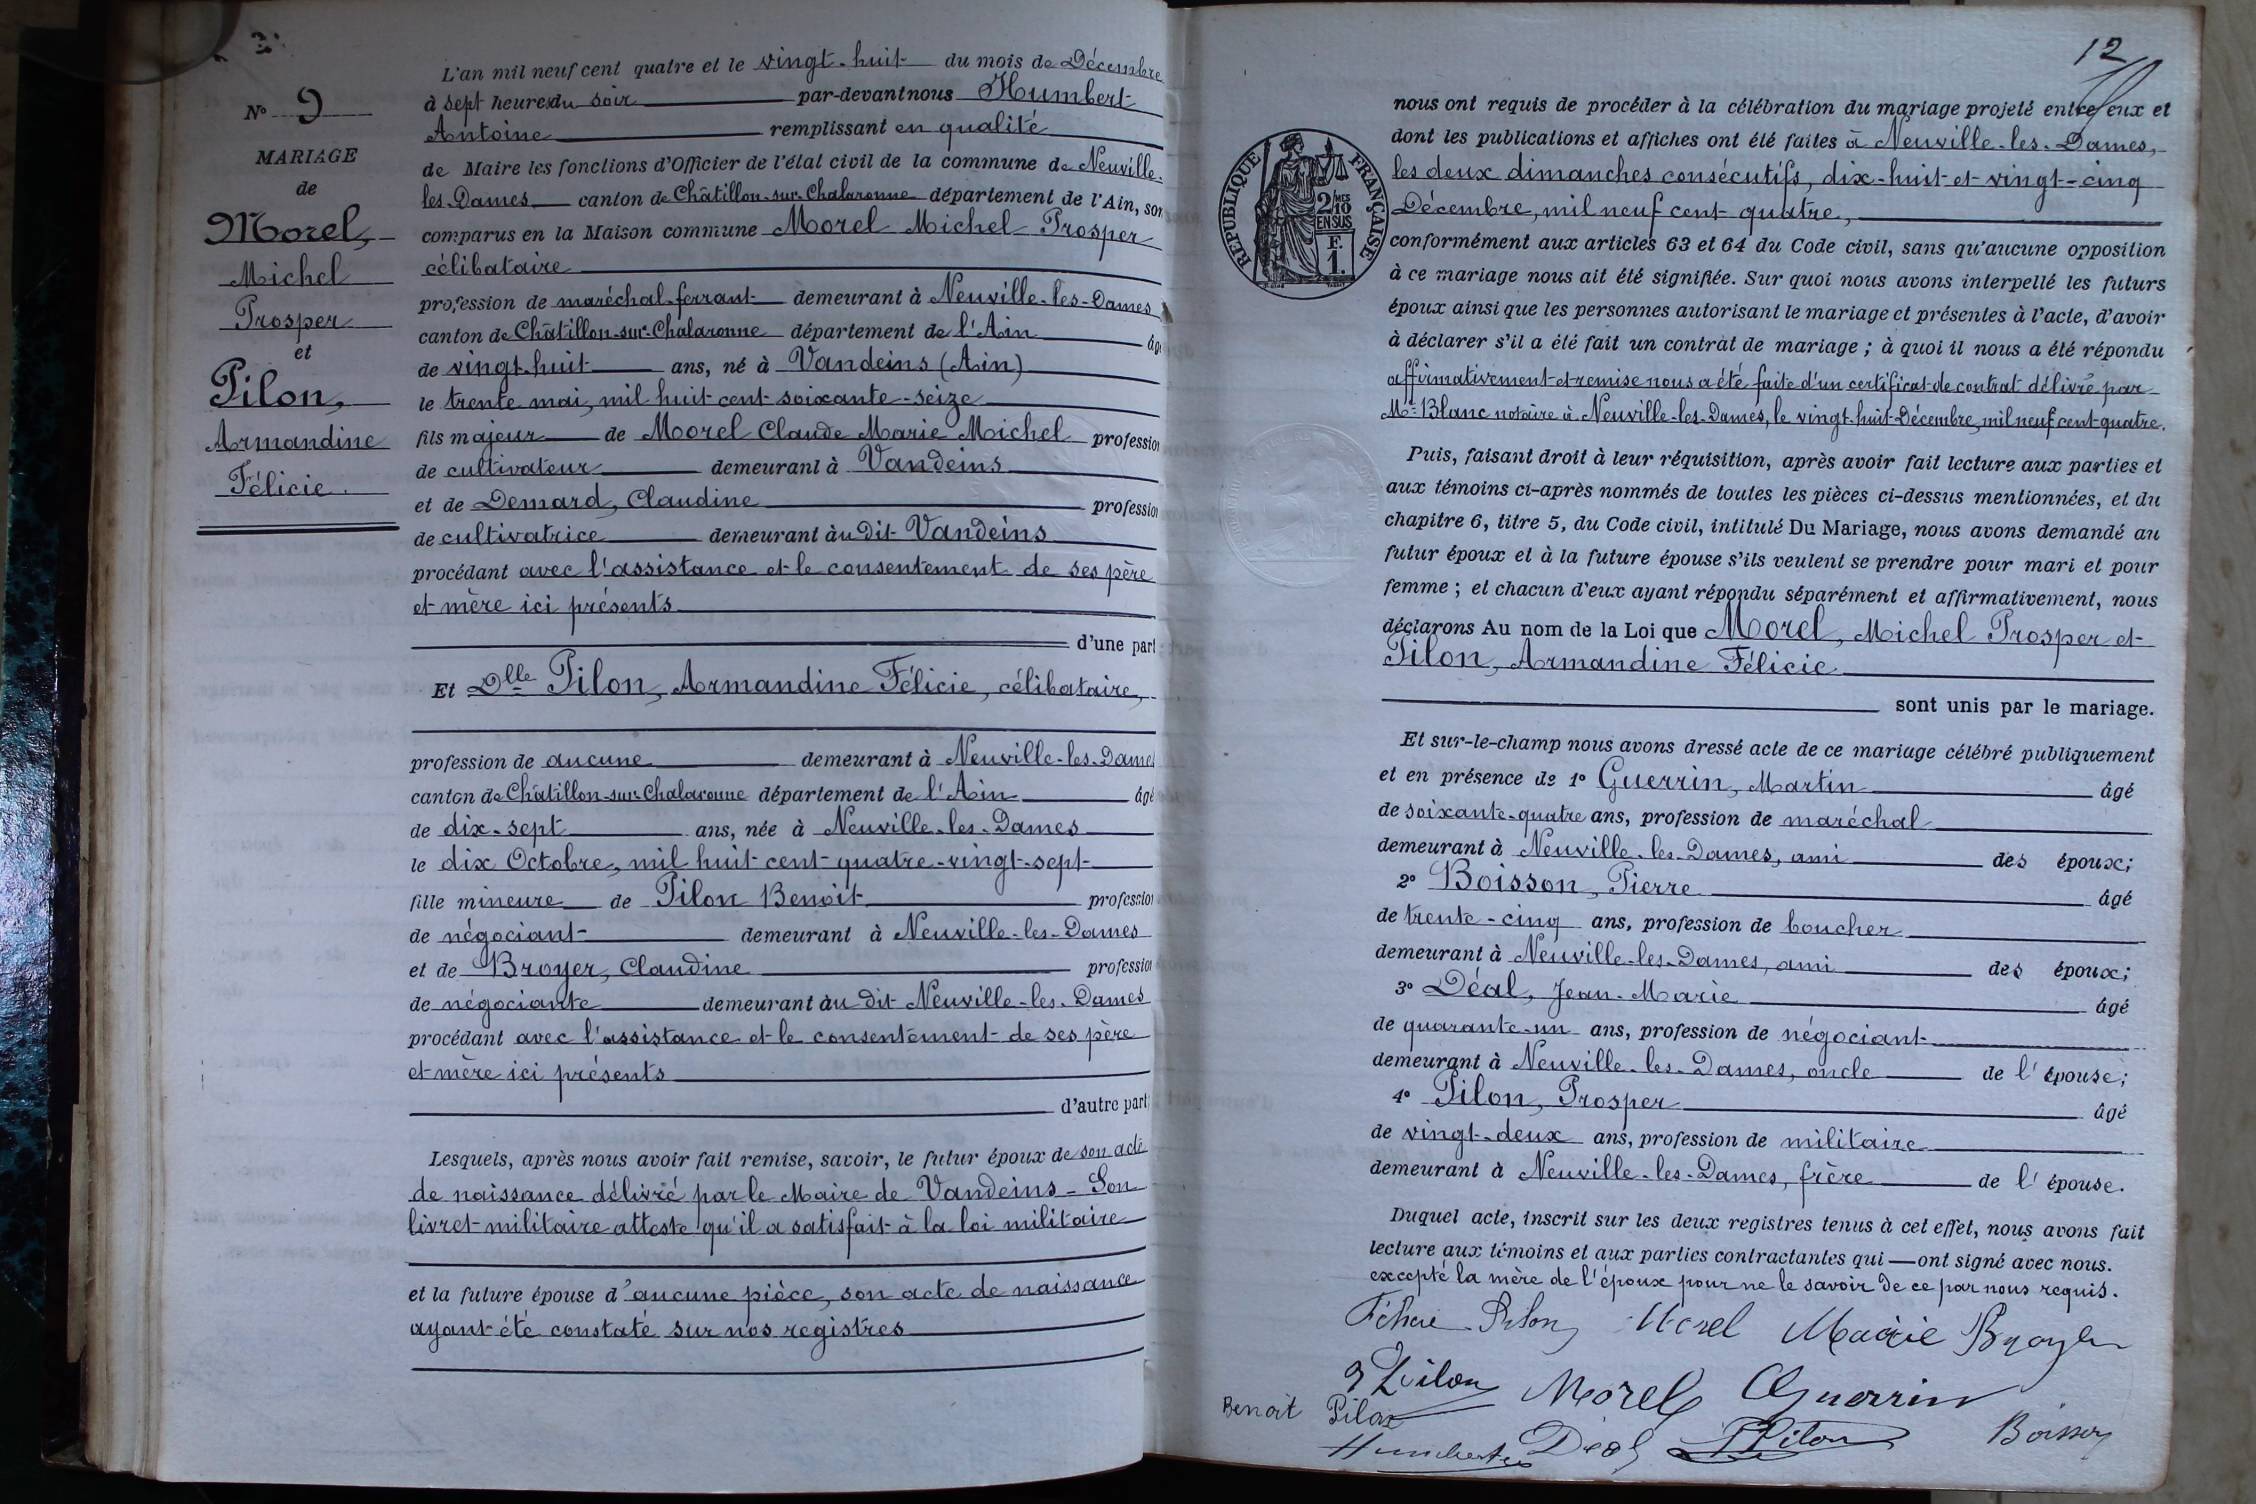 L'an mil neuf cent quatre et le vingt-huit du mois de Décembre
à sept heures du soir par-devant nous Humbert
Antoine remplissant en qualité
de Maire les fonctions d'Officier de l'état civil de la commune de Neuville-
les-Dames canton de Châtillon-sur-Chalaronne département de l'Ain, son
comparus en la Maison commune Morel Michel Prosper
célibataire
profession de maréchal-ferrant demeurant à Neuville-les-Dames
canton de Châtillon-sur-Chalaronne département de l'Ain âgé
de vingt-huit ans, né à Vandeins (Ain)
le trente mai, mil huit cent soixante-seize
fils majeur de Morel Claude Marie Michel profession
de cultivateur demeurant à Vandeins
et de Demard, Claudine profession
de cultivatrice demeurant àu dit Vandeins
procédant avec l'assistance et le consentement de ses père
et mère ici présents
d'une part
Et Dlle Pilon, Armandine Félicie, célibataire,
profession de aucune demeurant à Neuville-les-Dames
canton de Châtillon-sur-Chalaronne département de l'Ain âgé
de dix-sept ans, née à Neuville-les-Dames
le dix Octobre, mil huit cent quatre-vingt-sept
fille mineure de Pilon Benoit profession
de négociant demeurant à Neuville-les-Dames
et de Broyer, Claudine profession
de négociante demeurant àu dit Neuville-les-Dames
procédant avec l'assistance et le consentement de ses père
et mère ici présents
d'autre part;
Lesquels, après nous avoir fait remise, savoir, le futur époux de son acte
de naissance délivré par le Maire de Vandeins - Son
livret militaire atteste qu'il a satisfait à la loi militaire
et la future épouse d'aucune pièce, son acte de naissance
ayant été constaté sur nos registres
N° 9
MARIAGE
de
Morel,
Michel
Prosper
et
Pilon,
Armandine
Félicie
12
nous ont requis de procéder à la célébration du mariage projeté entre eux et
dont les publications et affiches ont été faites à Neuville-les-Dames,
les deux dimanches consécutifs, dix-huit et vingt-cinq
Décembre, mil neuf cent quatre,
conformément aux articles 63 et 64 du Code civil, sans qu'aucune opposition
à ce mariage nous ait été signifiée. Sur quoi nous avons interpellé les futurs
époux ainsi que les personnes autorisant le mariage et présentes à l'acte, d'avoir
à déclarer s'il a été fait un contrat de mariage ; à quoi il nous a été répondu
affirmativement et remise nous a été faite d'un certificat de contrat délivré par
Me Blanc notaire à Neuville-les-Dames, le vingt-huit Décembre, mil neuf cent quatre.
Puis, faisant droit à leur réquisition, après avoir fait lecture aux parties et
aux témoins ci-après nommés de toutes les pièces ci-dessus mentionnées, et du
chapitre 6, titre 5, du Code civil, intitulé Du Mariage, nous avons demandé au
futur époux et à la future épouse s'ils veulent se prendre pour mari et pour
femme ; et chacun d'eux ayant répondu séparément et affirmativement, nous
déclarons Au nom de la Loi que Morel, Michel Prosper et
Pilon, Armandine Félicie
sont unis par le mariage.
Et sur-le-champ nous avons dressé acte de ce mariage célébré publiquement
et en présence de 1° Guerrin, Martin âgé
de soixante-quatre ans, profession de maréchal
demeurant à Neuville-les-Dames, ami des époux;
2° Boisson, Pierre âgé
de trente-cinq ans, profession de boucher
demeurant à Neuville-les-Dames, ami des époux;
3° Déal, Jean-Marie âgé
de quarante-un ans, profession de négociant
demeurant à Neuville-les-Dames, oncle de l'épouse;
4° Pilon, Prosper âgé
de vingt-deux ans, profession de militaire
demeurant à Neuville-les-Dames, frère de l'épouse.
Duquel acte, inscrit sur les deux registres tenus à cet effet, nous avons fait
lecture aux témoins et aux parties contractantes qui — ont signé avec nous.
excepté la mère de l'époux pour ne le savoir de ce par nous requis.
Félicie Pilon Morel Marie Broyer
Pilon Morel Guerrin
Benoit Pilon
Humbert Déal Pilon Boisson
RÉPUBLIQUE FRANÇAISE
2/10 MES
EN SUS
F.
1.